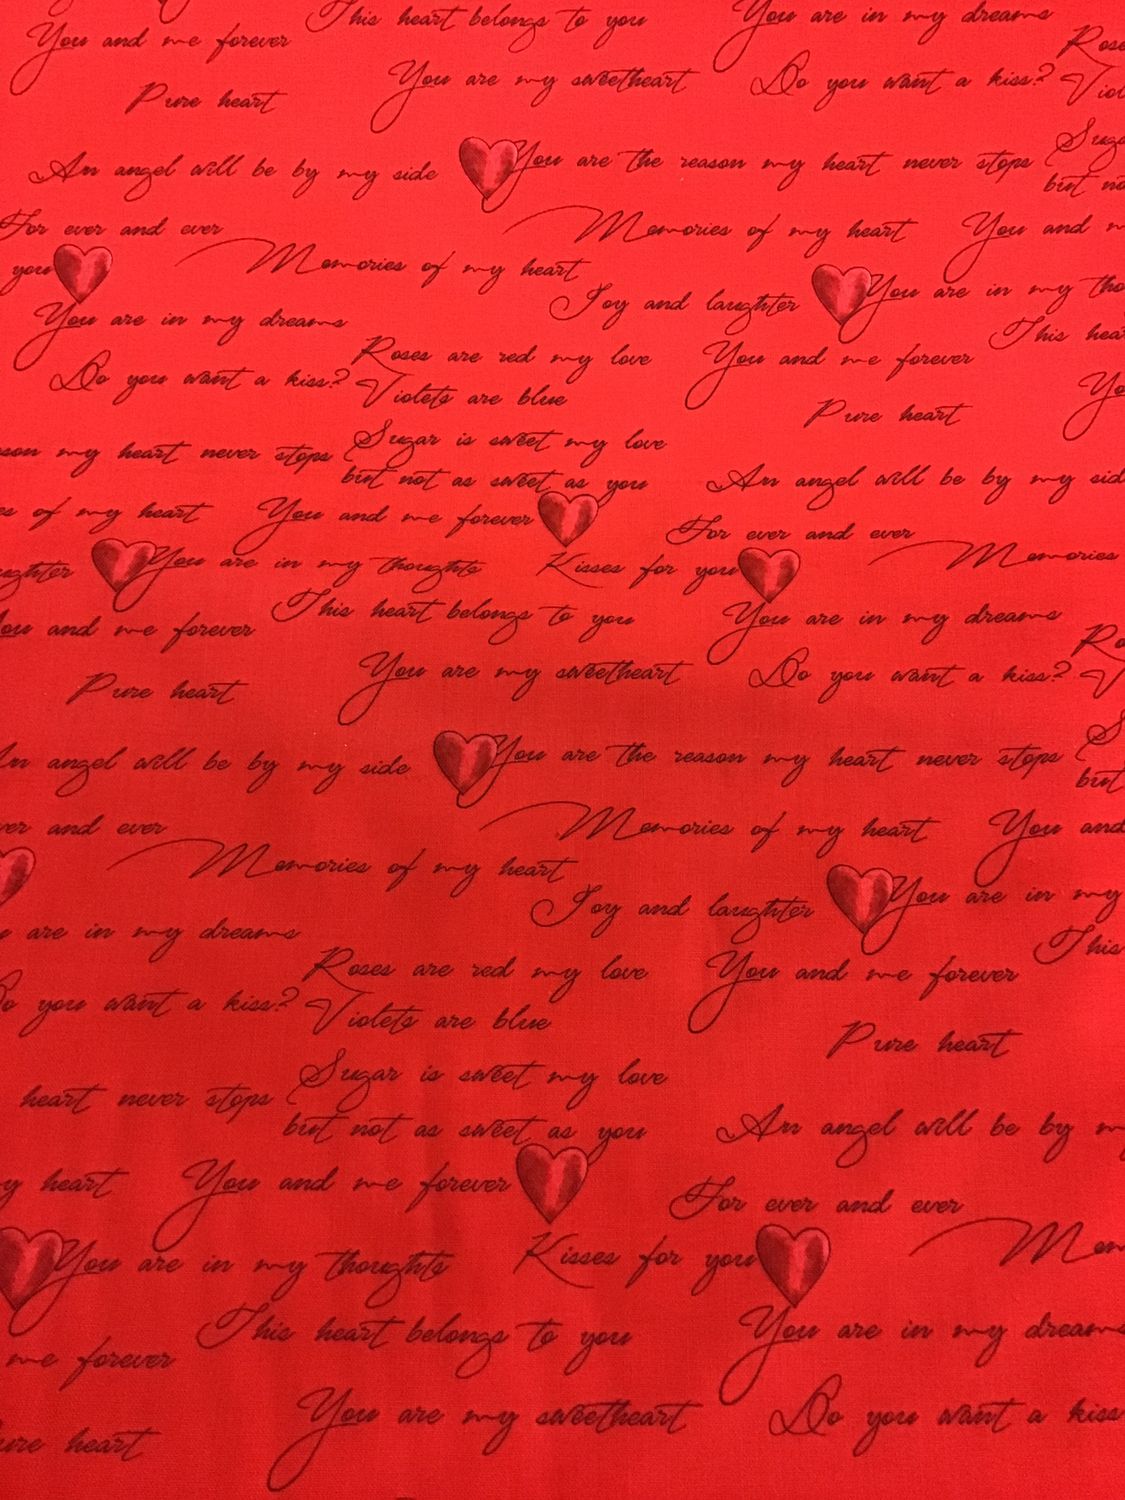 This heart belongs to you
You are in my dreams
You and me forever
Roses
You are my sweetheart
Do you want a kiss?
Pure heart
Sugar
An angel will be by my side
You are the reason my heart never stops
For ever and ever
Memories of my heart
You and
you
Memories of my heart
Joy and laughter
You are in my
You are in my dreams
This
Roses are red my love
You and me forever
Do you want a kiss?
Violets are blue
Pure heart
my heart never stops
Sugar is sweet my love
but not as sweet as you
An angel will be by my
of my heart
You and me forever
For ever and ever
Memories
You are in my thoughts
Kisses for you
This heart belongs to you
You are in my dreams
and me forever
You are my sweetheart
Do you want a kiss?
Pure heart
angel will be by my side
You are the reason my heart never stops
but
and ever
Memories of my heart
You and
Memories of my heart
Joy and laughter
You are in my
are in my dreams
This
Roses are red my love
You and me forever
you want a kiss?
Violets are blue
Pure heart
heart never stops
Sugar is sweet my love
but not as sweet as you
An angel will be by
heart
You and me forever
For ever and ever
You are in my thoughts
Kisses for you
This heart belongs to you
You are in my dreams
me forever
You are my sweetheart
Do you want a kiss
heart